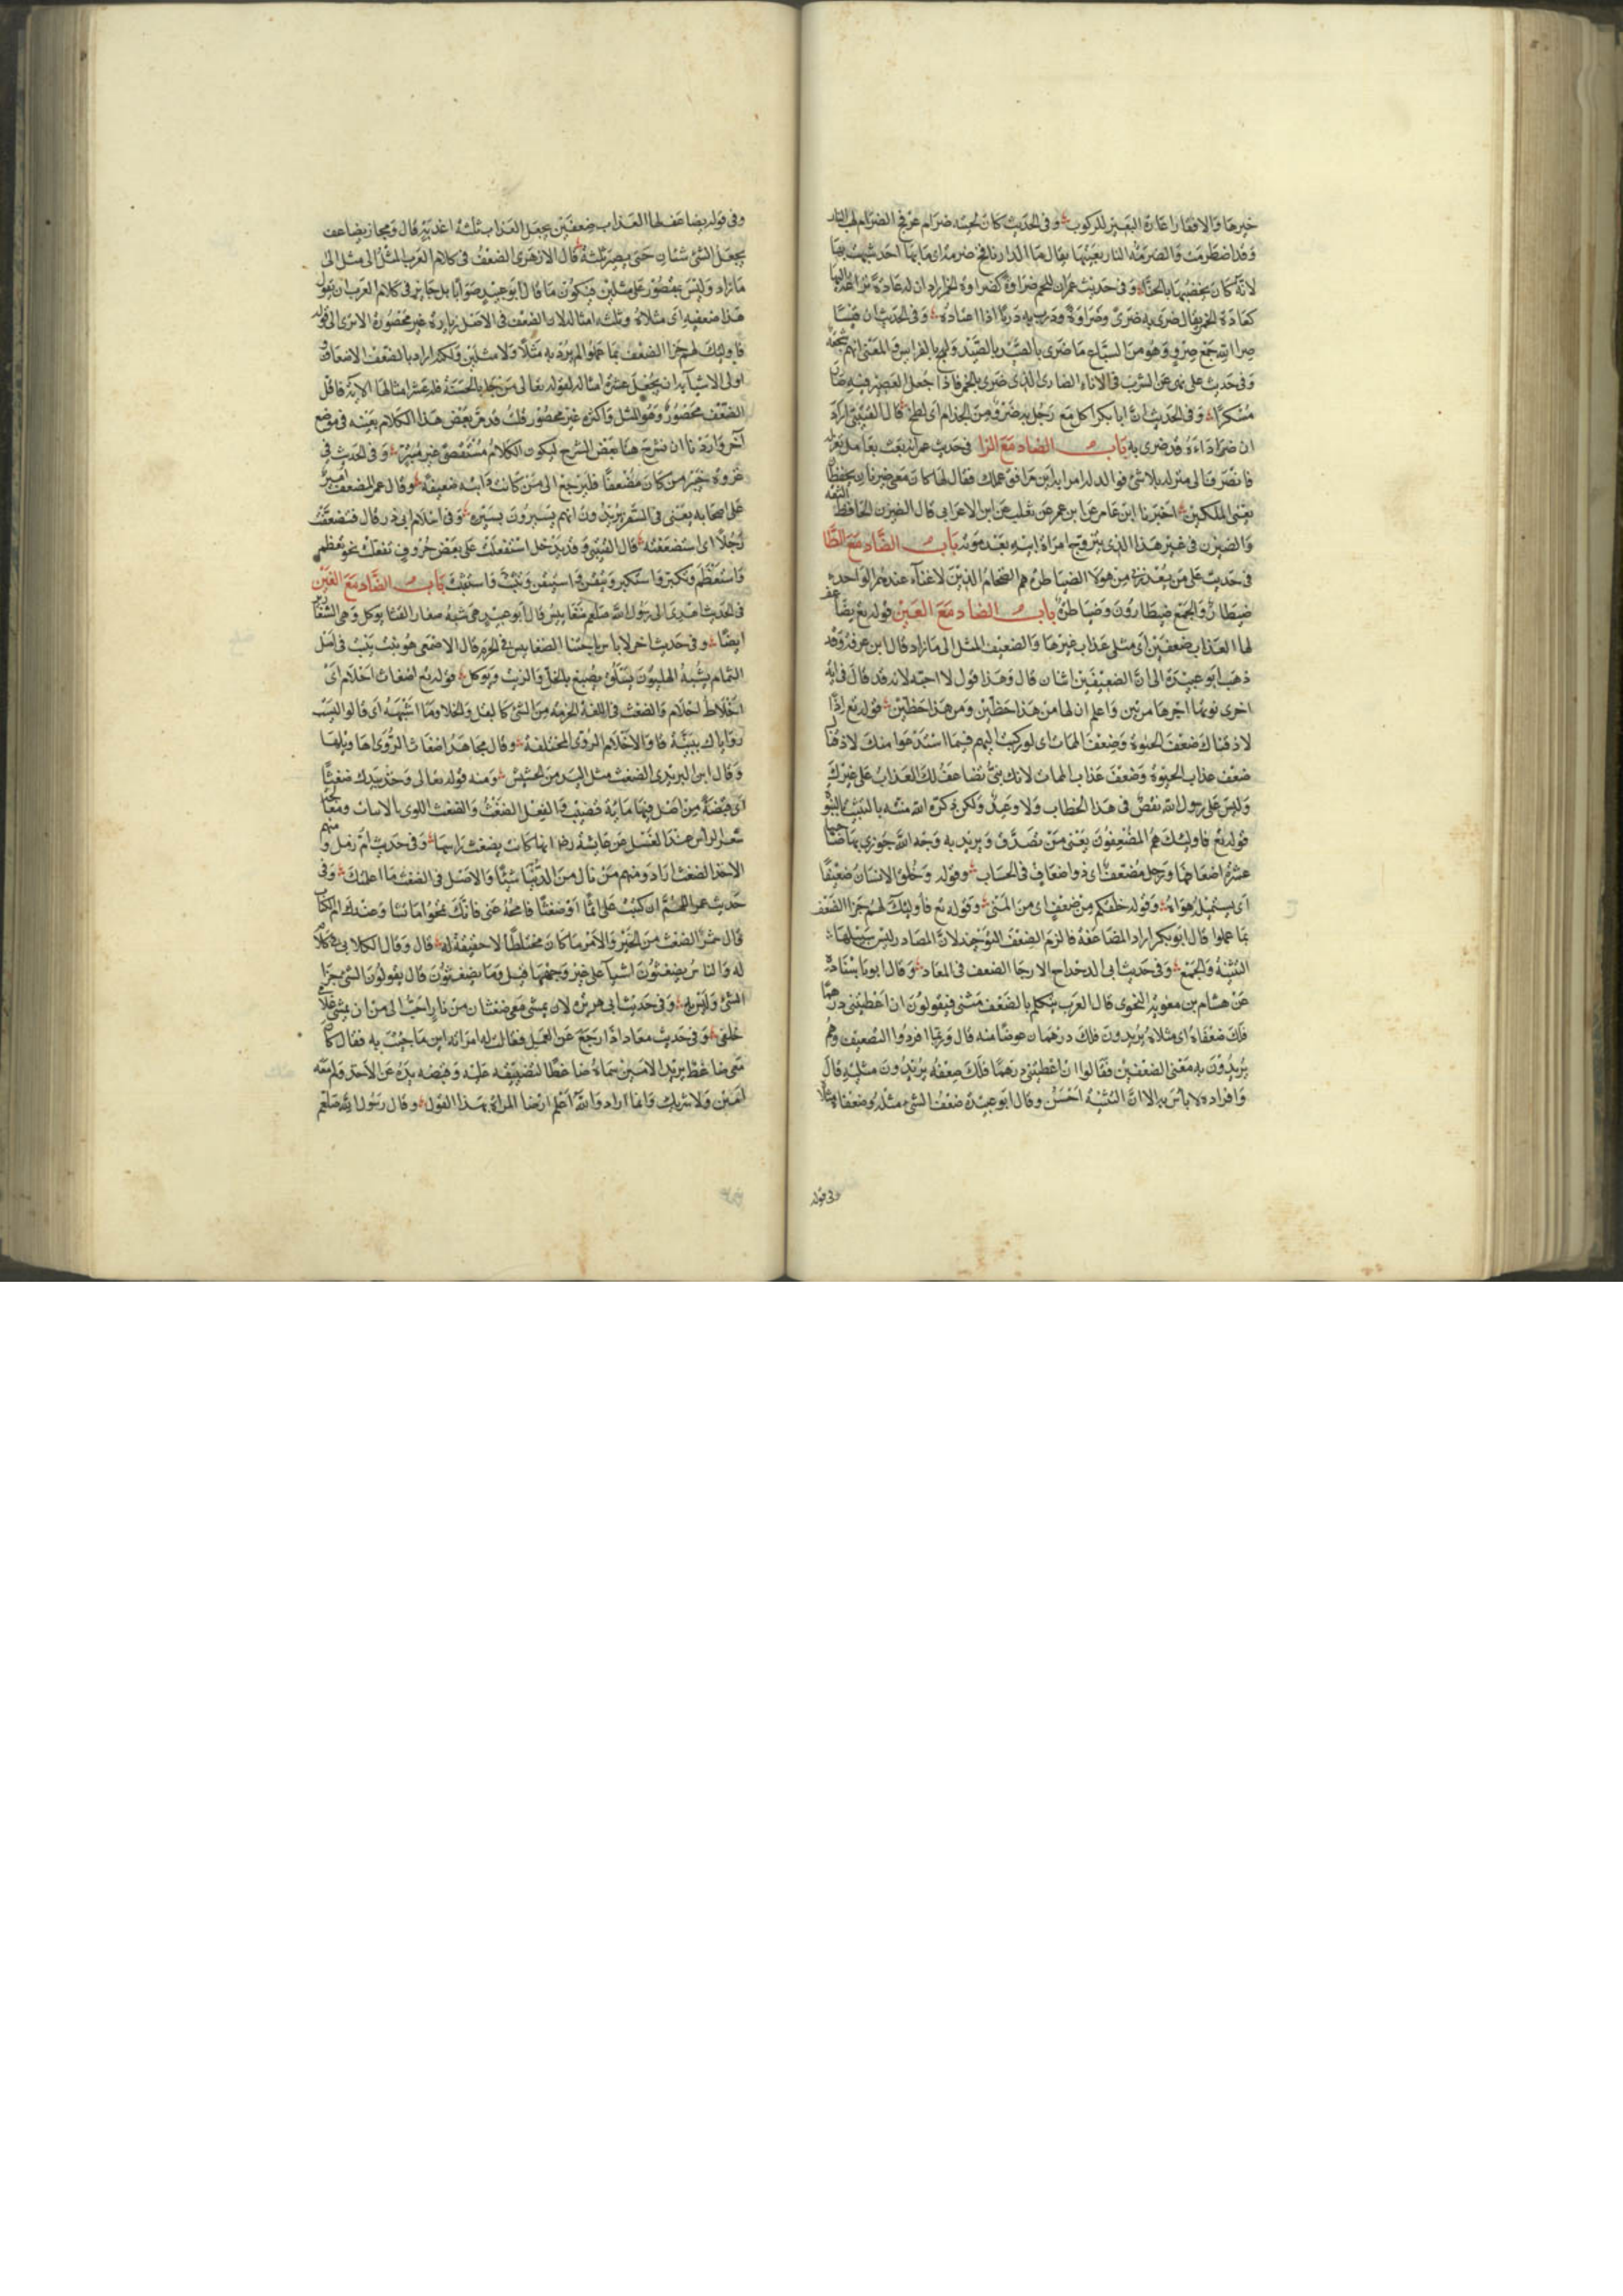 خيرها والافقار اعارة البعير للركوب وفى الحديث كان لحيته ضرام عرفج الضرام لهب النار
وقد اضطرمت والضرمة النار بعينها يقال ما بالدار نافخ ضرمة اى ما بها احد شبهت بها
لانه كان يخضبها بالحناء وفى حديث عمر ان للحم ضراوة كضراوة الخمر اراد ان له عادة
كعادة الخمر يقال ضرى به ضرى وضراوة ودرب به دربا اذا اعتاده وفى الحديث ان قيسا
ضراء الله جمع ضرو وهو من السباع ما ضرى بالصيد ولهج بالفرايس والمعنى انهم شجعه
وفى حديث على نهى عن الشرب فى الاناء الضارى الذى ضرى بالخمر فاذا جعل العصير فيه صار
مسكرا وفى الحديث ان ابا بكر اكل مع رجل به ضرو من الجذام اى لطخ قال القتيبى اراه
ان ضرا داءه قد ضرى به باب الضاد مع الزا فى حديث عمر انه بعث بعامل ثم عزله
فانصرف الى منزله بلا شئ فقالت له امراته اين مرافق عملك فقال لها كان معى ضيزنان يحفظان
يعنى الملكين اخبرنا ابن عمار عن ابى عمر عن ثعلب عن ابن الاعرابى قال الضيزن الحافظ الثقة
والضيزن فى غير هذا الذى يتزوج امراة ابيه بعد موته باب الضاد مع الطا
فى حديث على من يعذرنى من هولا الضياطرة هم الضخام الذين لا غناء عندهم الواحد
ضيطار والجمع ضيطارون وضياطرة باب الضاد مع العين قوله تع يضاعف
لها العذاب ضعفين اى مثلى عذاب غيرها والضعيف المثل الى ما زاد قال ابن عرفة وقد
ذهب ابو عبيدة الى ان الضعيفين اثنان قال وهذا قول لا احبه لانه قد قال فى اية
اخرى نوتها اجرها مرتين واعلم ان لها من هذا حظين ومن هذا حظين قوله تع اذا
لاذقناك ضعف الحيوة وضعف الممات اى لو ركنت اليهم فيما استدعوا منك لاذقناك
ضعف عذاب الحيوة وضعف عذاب الممات لانك نبى يضاعف لك العذاب على غيرك
وليس على رسول الله نقص فى هذا الخطاب ولا وعيد ولكن ذكره الله منته بالتثبيت بالنبوة
قوله تع فاوليك هم المضعفون يعنى من تصدق ويريد به وجه الله جوزى بها صاحبها
عشرة اضعافها ورجل مضعف اى ذو اضعاف فى الحساب وقوله وخلق الانسان ضعيفا
اى يستميله هواه وقوله خلقكم من ضعف اى من المنى وقوله تع فاوليك لهم جزا الضعف
بما عملوا قال ابو بكر اراد المضاعفة فالزم الضعف التوحيد لان المصادر ليس سبيلها
التثنية والجمع وفى حديث ابى الدحداح الا رجا الضعف فى المعاد وقال ابو بكر باسناده
عن هشام بن معوية النحوى قال العرب يتكلم بالضعف مثنى فيقولون ان اعطيتنى درهما
فلك ضعفاه اى مثلاه يريدون فلك درهمان عوضا منه قال وربما افردوا الضعيف وهم
يريدون به معنى الضعفين فقالوا ان اعطيتنى درهما فلك ضعفه يريدون مثليه قال
وافراده لا باس به الا ان التثنية احسن وقال ابو عبيدة ضعف الشئ مثله وضعفاه مثلاه
وفى قوله
وفى قوله يضاعف لها العذاب ضعفين يجعل العذاب ثلثة اعذبة قال ومجاز يضاعف
يجعل الشئ شئان حتى يصير ثلثة قال الازهرى الضعف فى كلام العرب المثل الى مثل الى
ما زاد وليس بمقصور على مثلين فيكون ما قال ابو عبيد صوابا بل جايز فى كلام العرب ان تقول
هذا ضعفيه اى مثلاه وثلثة امثاله لان الضعف فى الاصل زيادة غير محصورة الا ترى الى قوله
فاوليك لهم جزا الضعف بما عملوا لم يرد به مثلا ولا مثلين ولكنه اراد بالضعف الاضعاف
اولى الاشيا به ان يجعل عشرة امثاله لقوله تعالى من جا بالحسنة فله عشر امثالها الاية فاقل
الضعف محصور وهو المثل واكثره غير محصور قلت قد مر بعض هذا الكلام بعينه فى موضع
آخر واردنا ان نشرح هنا بعض الشرح ليكون الكلام مستقصى غير مبتر وفى الحديث فى
غزوة خيبر من كان مضعفا فليرجع الى من كانت دابته ضعيفة وقال عمر المضعف امير
على اصحابه يعنى فى السفر يريدون انهم يسيرون بسيره وفى اسلام ابى ذر قال فتضعفت
رجلا اى استضعفته قال القتيبى وقد يدخل استفعلت على بعض حروف تفعلت نحو تعظم
واستعظم وتكبر واستكبر وتيقن واستيقن وتثبت واستثبت باب الضاد مع الغين
فى الحديث اهدى الى رسول الله صلعم ضغابيس قال ابو عبيد هى شبه صغار القثا يوكل وهى الشعارير
ايضا وفى حديث اخر لا باس باجتنا الضغابيس فى الحرم قال الاصمعى هو نبت ينبت فى اصل
الثمام يشبه الهليون يسلق يصبغ بالخل والزيت ويوكل قوله تع اضغاث احلام اى
اخلاط احلام والضغث فى اللغة الحزمة من الشئ كالبقل والخلا وما اشبهه اى قالوا ليست
روياك ببينة فاوالاحلام الروى المختلفة وقال مجاهد اضغاث الرويا اهاويلها
وقال ابن اليزيدى الضغث مثل اليد من الحشيش ومنه قوله تعالى وخذ بيدك ضغثا
اى قبضة من اصل فيها ماية قضيب والفعل الضغث والضغث اللوى بالاسنان ومعالجة
شعر الراس عند الغسل عن عايشة رضا انها كانت يضغث راسها وفى حديث ام زمل ومنهم
الاخذ الضغث اراد ومنهم من نال من الدنيا شيئا والاصل فى الضغث ما اعلمتك وفى
حديث عمر اللهم ان كتبت على اثما او ضغثا فامحه عنى فانك تمحوا ما تشا وعندك ام الكتاب
قال شمر الضغث من الخبر والامر ما كان مختلطا لا حقيقة له قال وقال الكلابى فى كلام
له والناس يضغثون اشيا على غير وجهها قيل وما يضغثون قال يقولون الشئ جزا
الشئ وليس به وفى حديث ابى هريرة لان يمشى معى ضغثان من نار احب الى من ان يمشى غلامى
خلفى وفى حديث معاذ اذا رجع عن العمل فقالت له امراته اين ما جيت به فقال كان
معى ضاغط يريد الامين سماه ضاغطا لتضييقه عليه وقبضه يده عن الاخذ ولم يكن معه
امين ولا شريك وانما اراد والله اعلم ارضا المراة بهذا القول وقال رسول الله صلعم